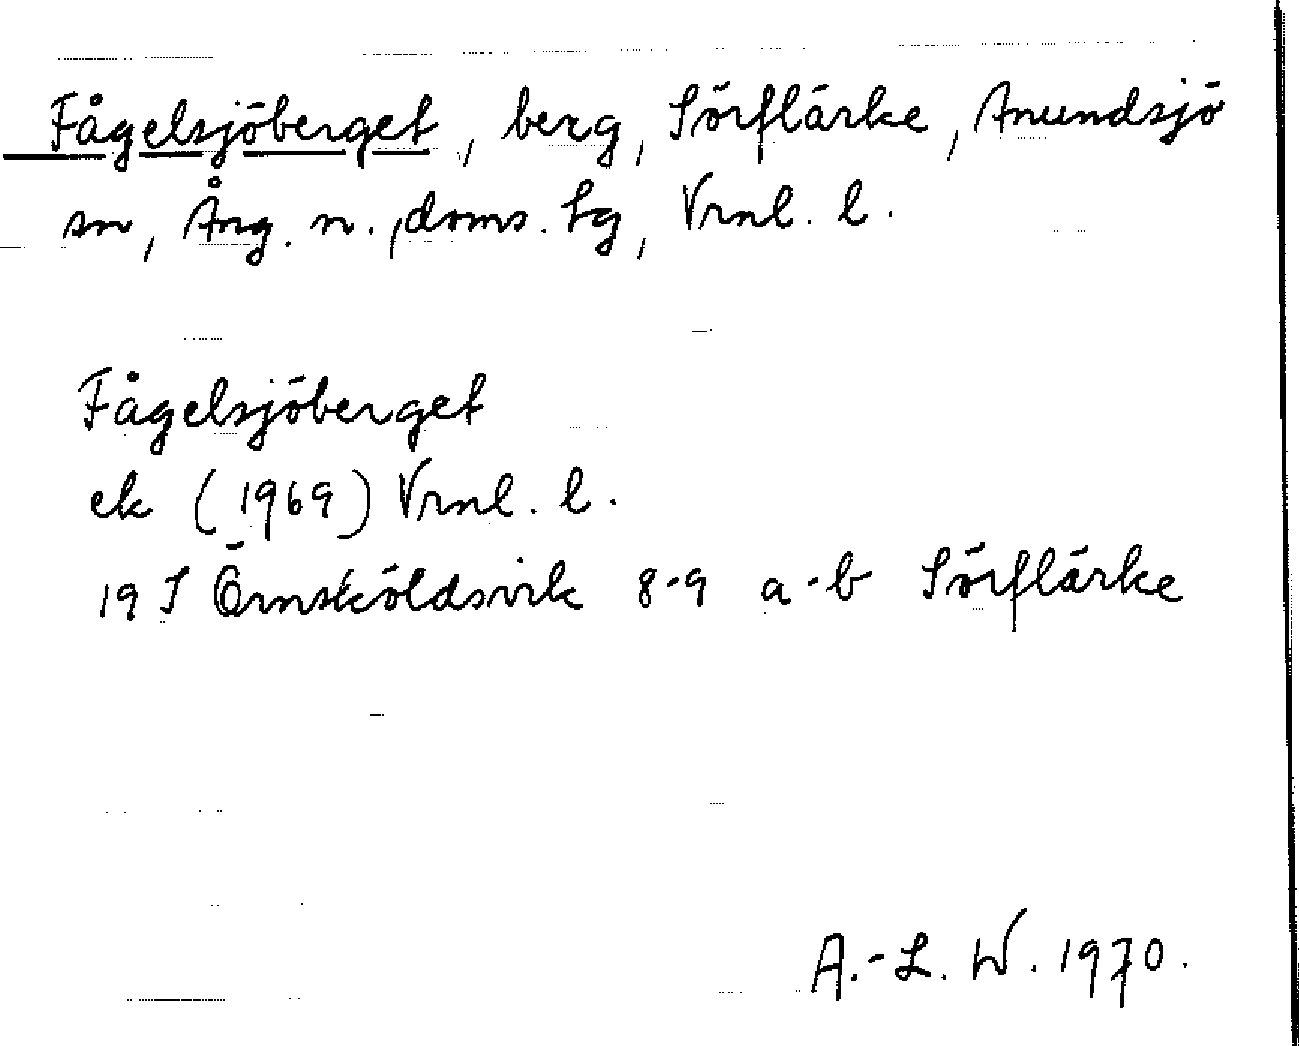 Fågelsjöberget, berg, Sörflärke, Anundsjö
sn, Ång. n., doms. hg, Vrnl. l.
Fågelsjöberget
ek (1969) Vrnl. l.
19 I Örnsköldsvik 8-9 a-b Sörflärke
A.-L. W. 1970.